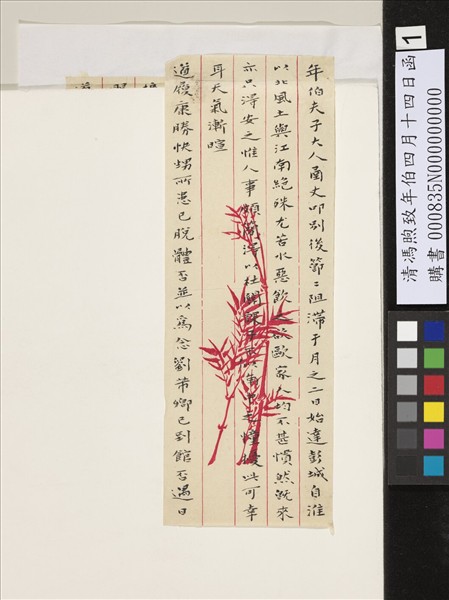 年伯夫子大人函丈叩別後節〻阻滯于月之二日始達彭城自淮
以北風土與江南絕殊尤苦水惡飲之欲歐家人均不甚慣然既來
亦只得安之惟人事頗簡淨以杜門此可幸
耳天氣漸暄
道履康勝快甥所患已脫體否並以為念劉芾卿已到館否過日
1
清馮煦致年伯四月十四日函
購書 000835N000000000